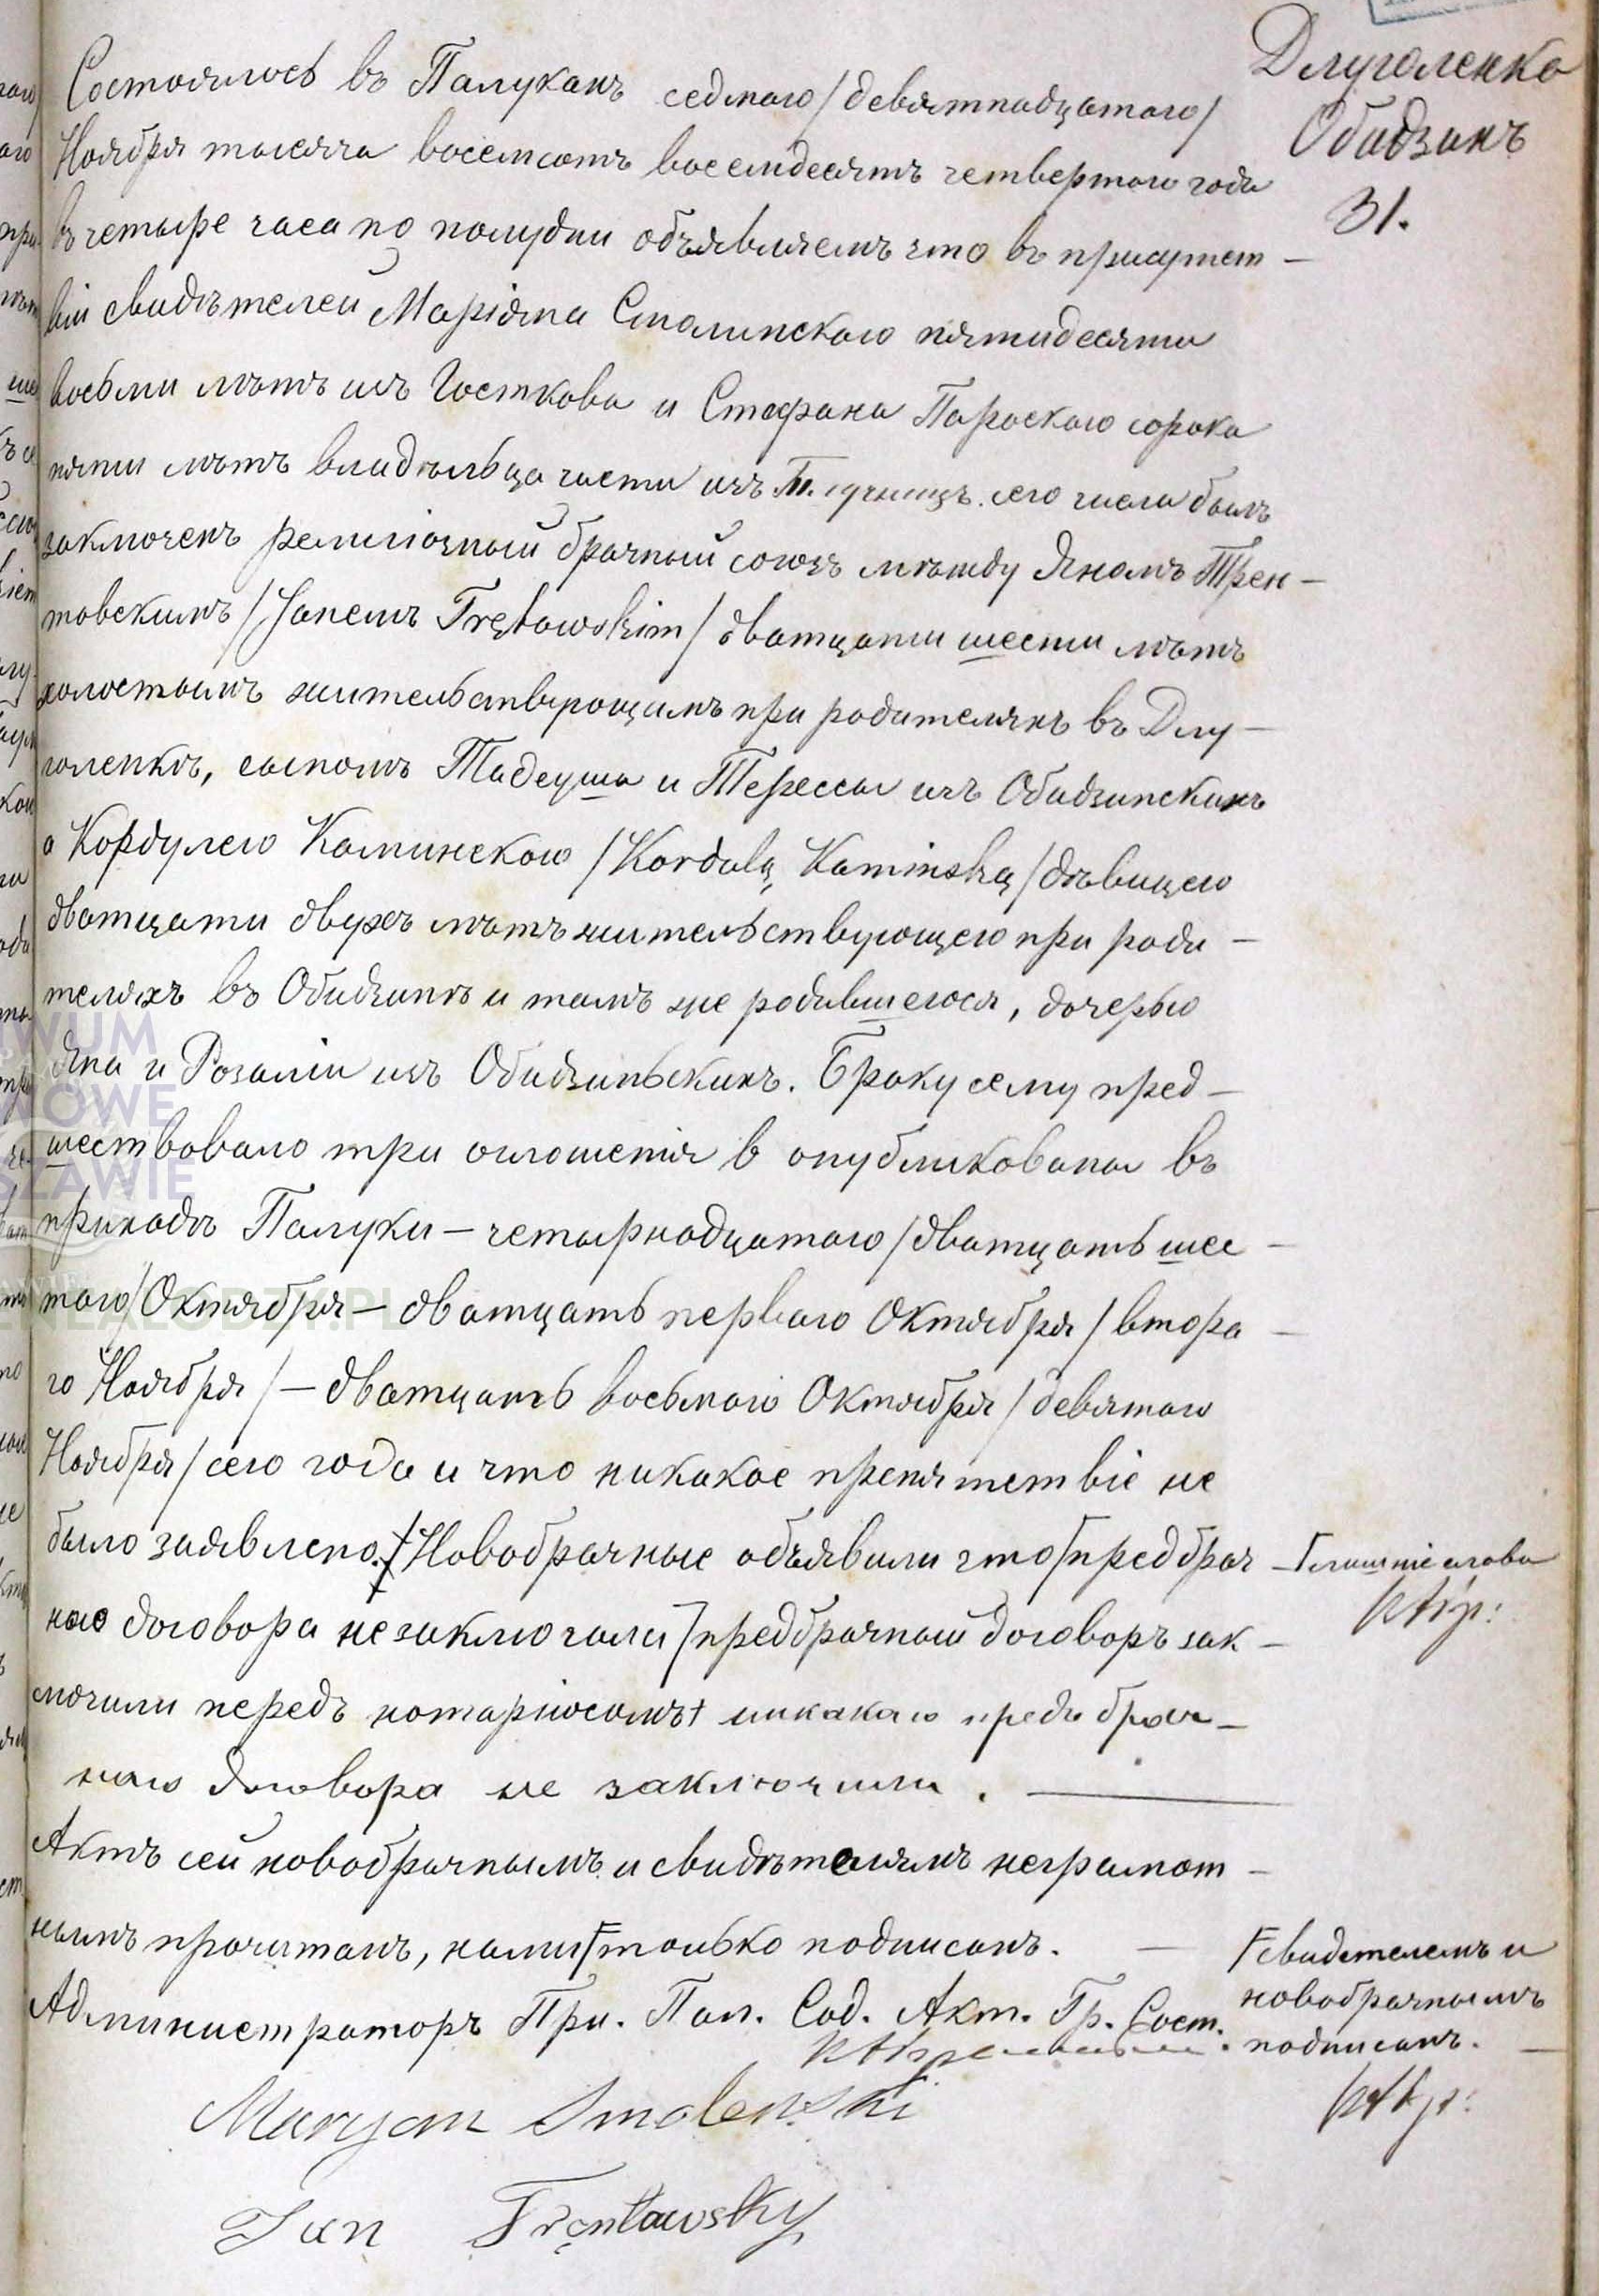 Длуголенка
Обидзинъ
31.
Состоялось въ Палукахъ седмаго /девятнадцатаго/
Ноября тысяча восемсотъ восемдесятъ четвертаго года
въ четыре часа по полудни объявляемъ что въ присутст-
віи свидѣтелей Маріяна Смолинскаго пятидесяти
восьми лѣтъ изъ Госткова и Стефана Пароскаго сорока
пяти лѣтъ владѣльца части изъ сего числа былъ
заключенъ религіозный брачный союзъ мѣжду Яномъ Трен-
товскимъ /Janemъ Trętowskim/ дватцати шести лѣтъ
холостымъ жительствующимъ при родителяхъ въ Длу-
голенкѣ, сыномъ Тадеуша и Терессы изъ Обидзинскихъ
а Кордулею Каминскою /Kordulą Kaminską/ дѣвицею
дватцати двухъ лѣтъ жительствующею при роди-
теляхъ въ Обидзинѣ и тамъ же родившеюся, дочерью
Яна и Розаліи изъ Обидзиньскихъ. Браку сему пред-
шествовало три оглошенія в опубликованы въ
приходѣ Палуки - четырнадцатаго /дватцать шес-
таго/ Октября - дватцать перваго Октября /втора-
го Ноября/ - дватцать восьмаго Октября /девятаго
Ноября/ сего года и что никакое препятствіе не
было заявлено. Новобрачные объявили что [предбрач-
наго договора незаключали] предбрачный договоръ зак-
лючили передъ нотаріюсомъ † никакаго предъ брач-
наго договора не заключили.
Актъ сей новобрачнымъ и свидѣтелямъ неграмот-
нымъ прочитанъ, нами Г только подписанъ.
Администраторъ При. Пал. Сод. Акт. Гр. Сост.
Maryan Smolenski
Jan Tręntowsky
Г лишніе слова
Г свидетелемъ и
новобрачнымъ
подписанъ.
WUM
NOWE
SZAWIE
GENEALODZY.PL